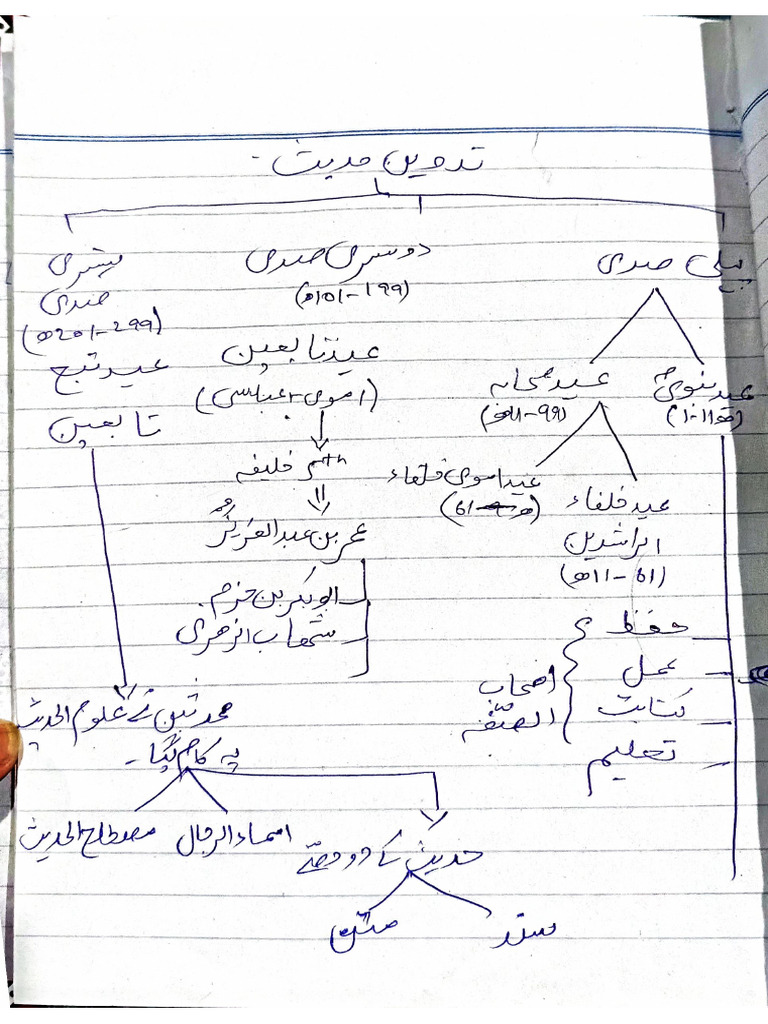 تدوین حدیث -
پہلی صدی
عہد نبویؐ
(1-11ھ)
عہد صحابہ
(11-99ھ)
عہد خلفاء
الراشدین
(11-61ھ)
عہد اموی خلفاء
حفظ
عمل
کتابت
تعلیم
اصحاب
الصفّہ
دوسری صدی
(101-199ھ)
عہد تابعین
(اموی + عباسی)
خلیفہ
عمر بن عبدالعزیزؒ
ابوبکر بن حزم
شھاب الزھری
تیسری
صدی
(201-299ھ)
عہد تبع
تابعین
محدثین نے علوم الحدیث
پہ کام کیا -
مصطلح الحدیث
اسماء الرجال
حدیث کے دو حصّے
سند
متن